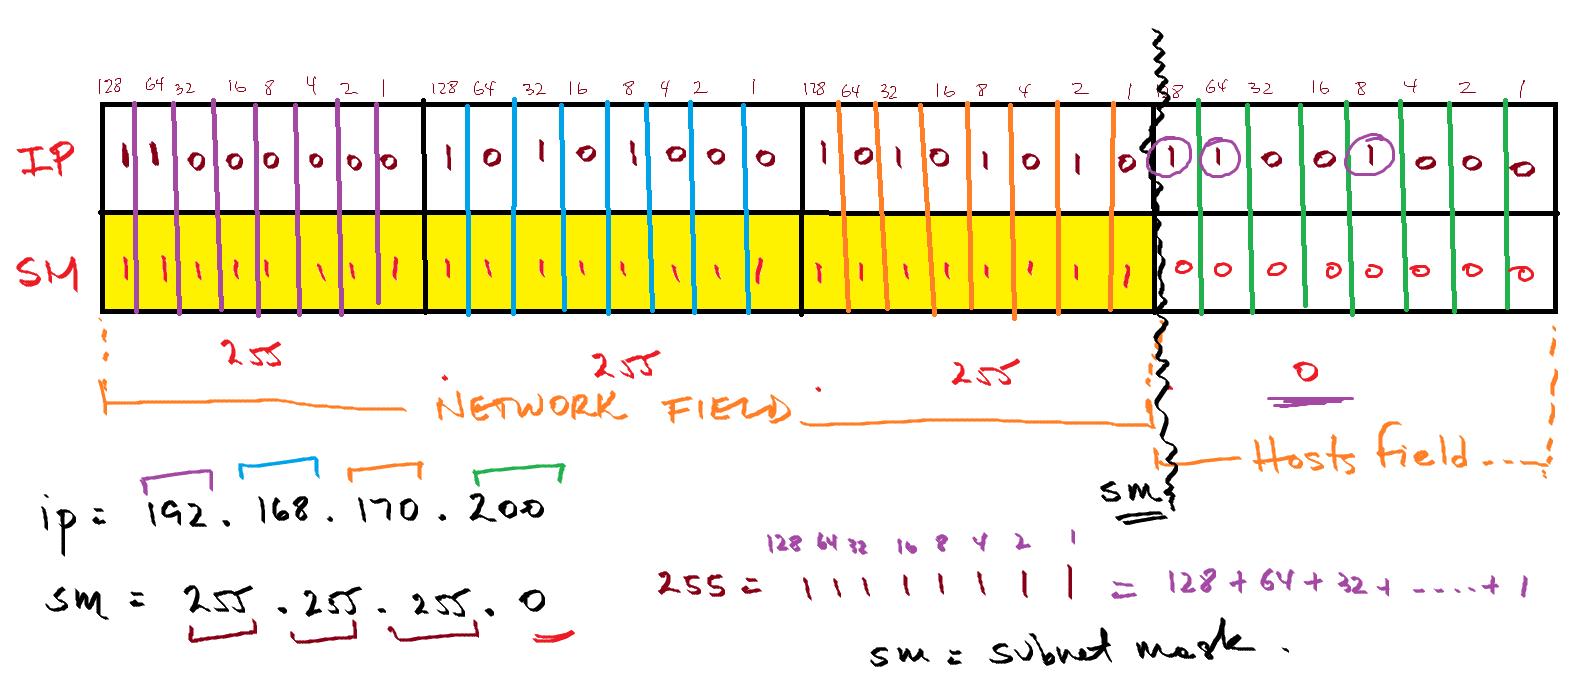 128 64 32 16 8 4 2 1 128 64 32 16 8 4 2 1 128 64 32 16 8 4 2 1 128 64 32 16 8 4 2 1
IP 1 1 0 0 0 0 0 0 1 0 1 0 1 0 0 0 1 0 1 0 1 0 1 0 1 1 0 0 1 0 0 0
SM 1 1 1 1 1 1 1 1 1 1 1 1 1 1 1 1 1 1 1 1 1 1 1 1 0 0 0 0 0 0 0 0
255 255 255 0
NETWORK FIELD
Hosts field....
sm
ip = 192.168.170.200
sm = 255.255.255.0
128 64 32 16 8 4 2 1
255 = 1 1 1 1 1 1 1 1 = 128 + 64 + 32 + ..... + 1
sm = subnet mask.